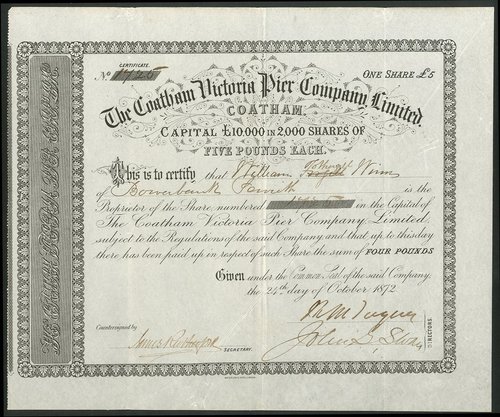 CERTIFICATE
No. 1725 ONE SHARE £5
The Coatham Victoria Pier Company, Limited
COATHAM.
CAPITAL £10,000 IN 2000 SHARES OF
FIVE POUNDS EACH.
This is to certify that William Winn
of is the
Proprietor of the Share, numbered 1725 in the Capital of
THE COATHAM VICTORIA PIER COMPANY, LIMITED,
subject to the Regulations of the said Company and that up to this day
there has been paid up in respect of such Share the sum of FOUR POUNDS
Given under the Common Seal of the said Company,
the 24th day of October 1872
Countersigned by
SECRETARY.
DIRECTORS.